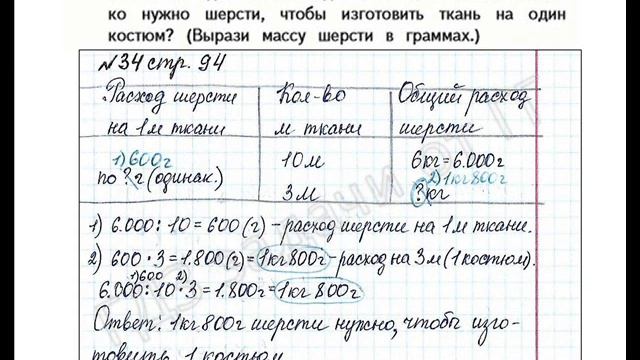 ко нужно шерсти, чтобы изготовить ткань на один
костюм? (Вырази массу шерсти в граммах.)
№34 стр. 94
Расход шерсти Кол-во Общий расход
на 1м ткани м ткани шерсти
1) 600г 10м 6кг=6.000г
2) 1кг800г
по ? г (одинак.) 3м ? кг
1) 6.000:10=600(г) – расход шерсти на 1м ткани.
2) 600·3=1.800(г)=1кг800г – расход на 3м (1 костюм).
1) 600 2)
6.000:10·3=1.800г=1кг800г
Ответ: 1кг 800г шерсти нужно, чтобы изго-
товить 1 костюм